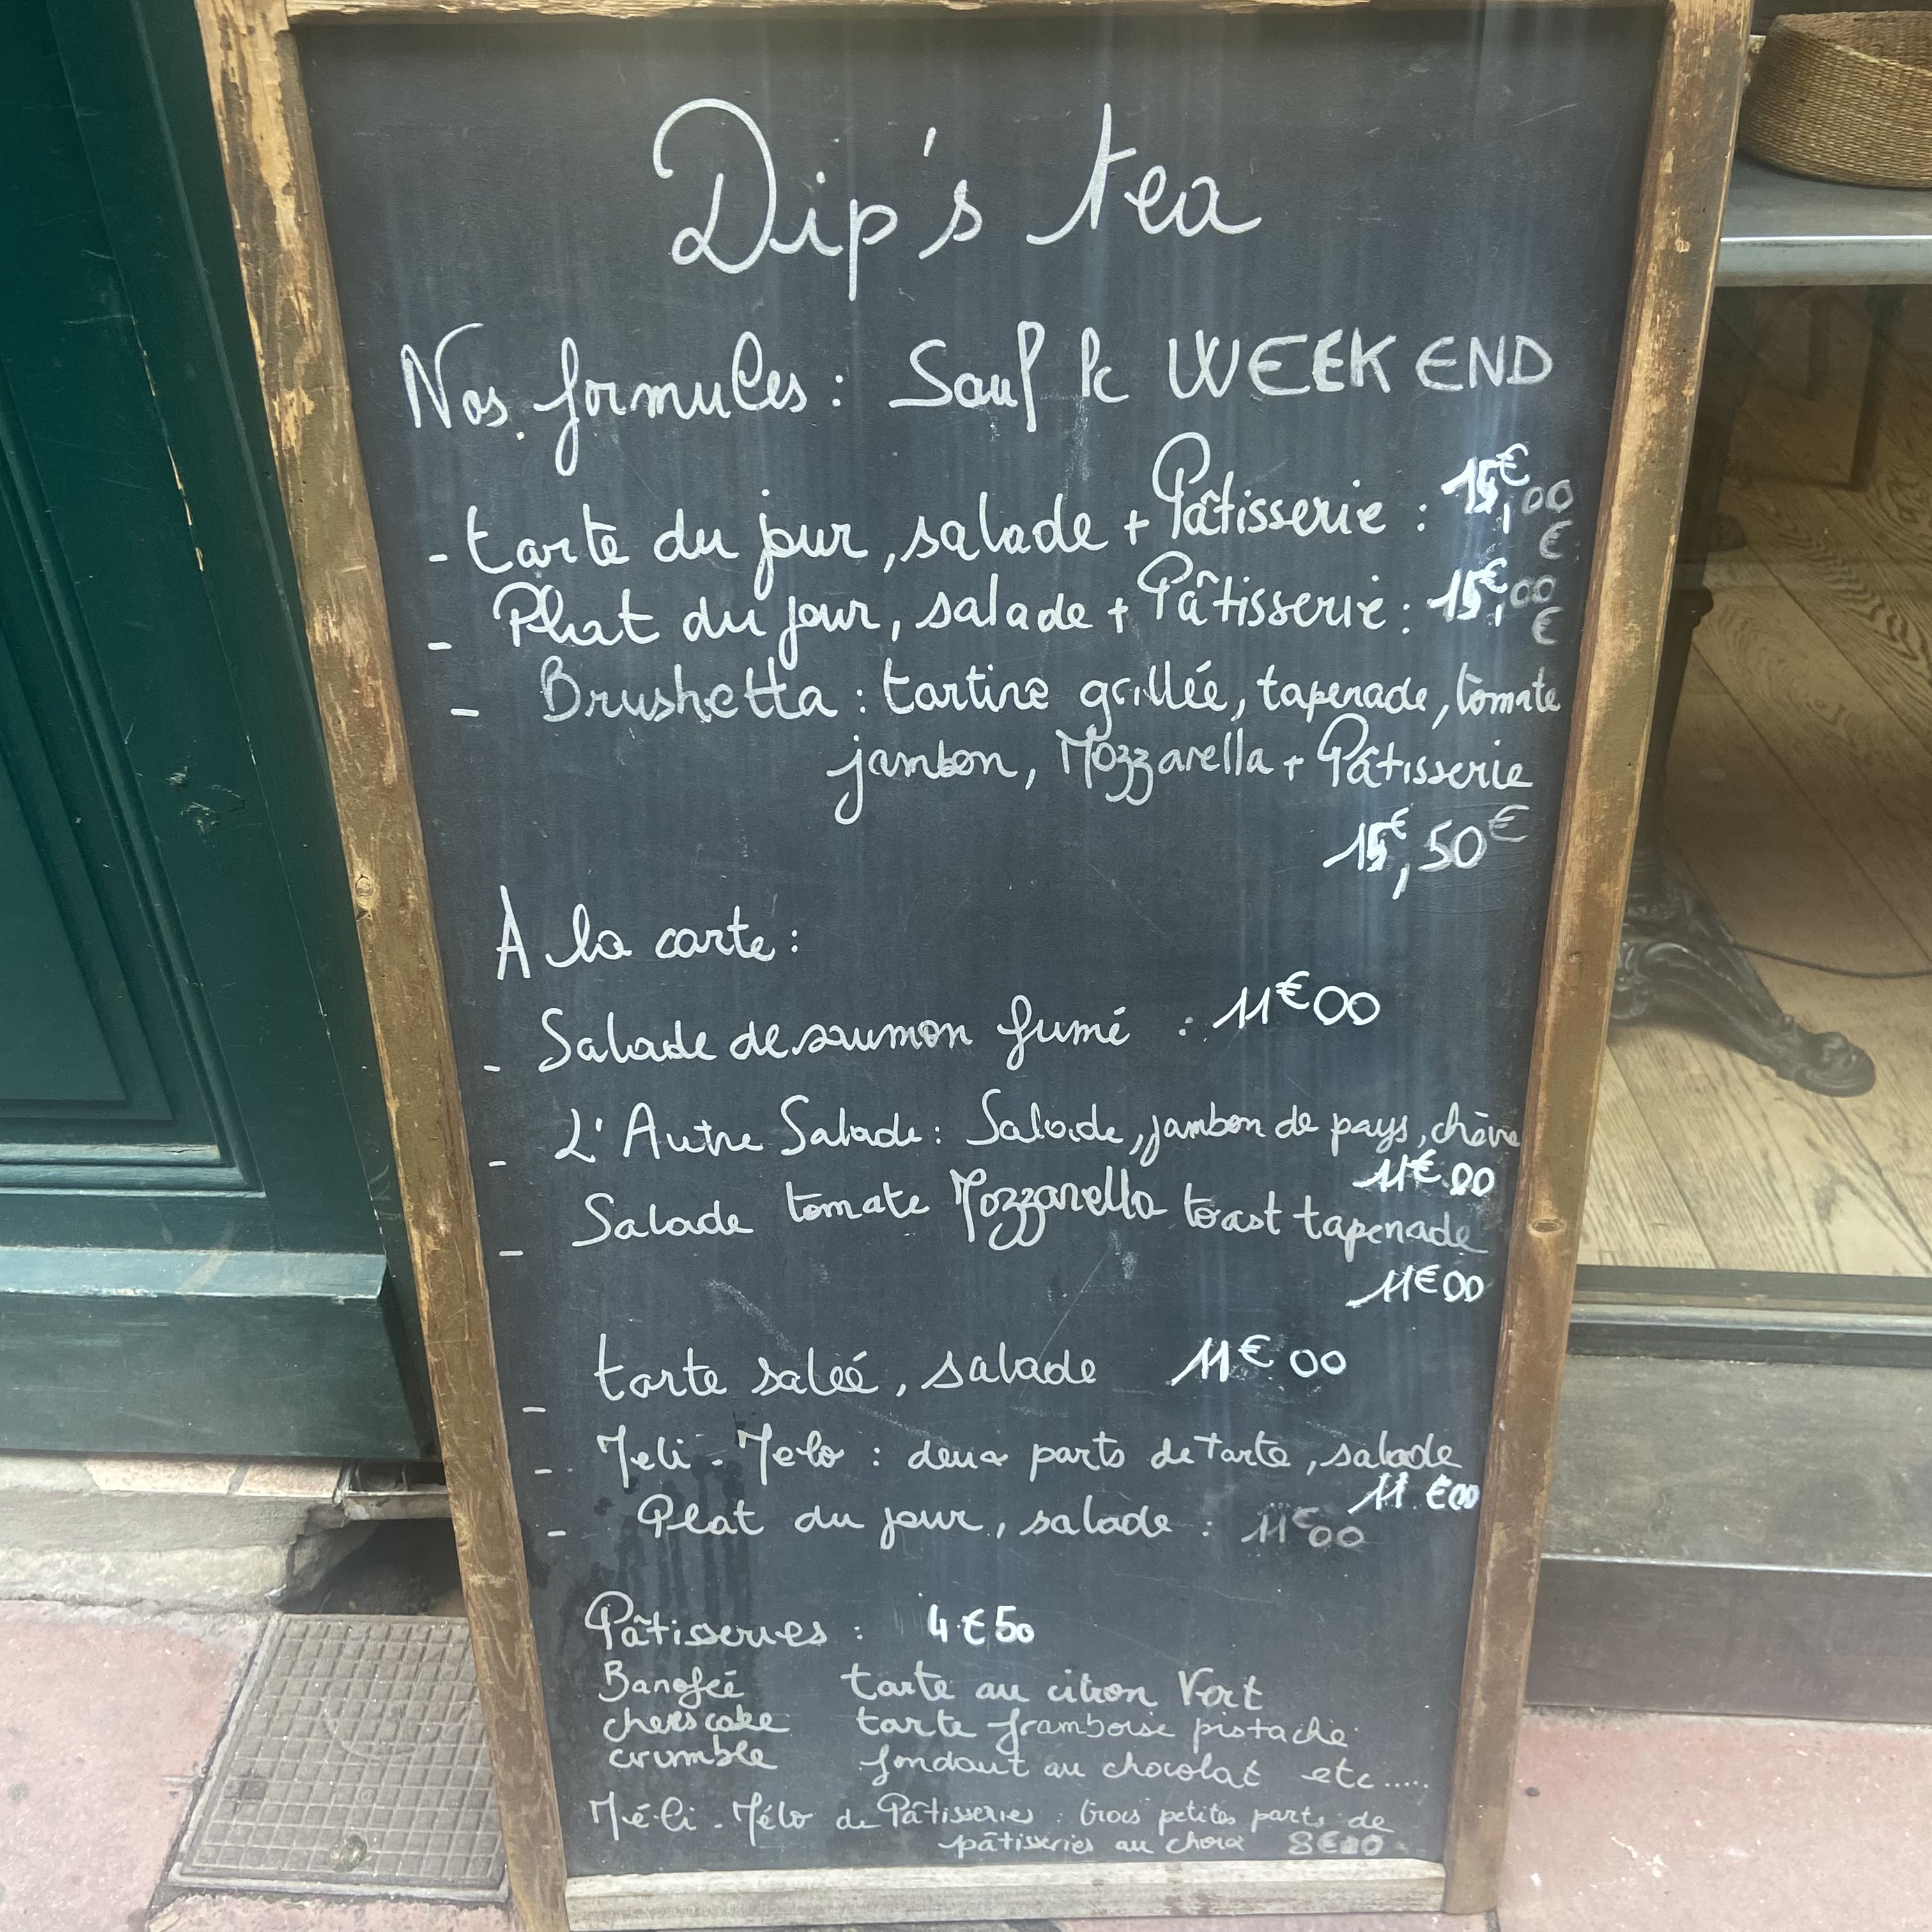 Dip's tea
Nos formules : Sauf le WEEK END
- tarte du jour, salade + Pâtisserie : 15€,00 €
- Plat du jour, salade + Pâtisserie : 15€,00 €
- Brushetta : tartine grillée, tapenade, tomate
jambon, Mozzarella + Pâtisserie
15€,50€
A la carte :
- Salade de saumon fumé : 11€00
- L'Autre Salade : Salade, jambon de pays, chèvre
11€00
- Salade tomate Mozzarella toast tapenade
11€00
- tarte saleé, salade 11€00
- Meli-Melo : deux parts de tarte, salade
11€00
- Plat du jour, salade : 11€00
Pâtisseries : 4€50
Banofeé tarte au citron Vert
cheescake tarte framboise pistache
crumble fondant au chocolat etc.....
Méli-Mélo de Pâtisseries : trois petites parts de
pâtisseries au choix